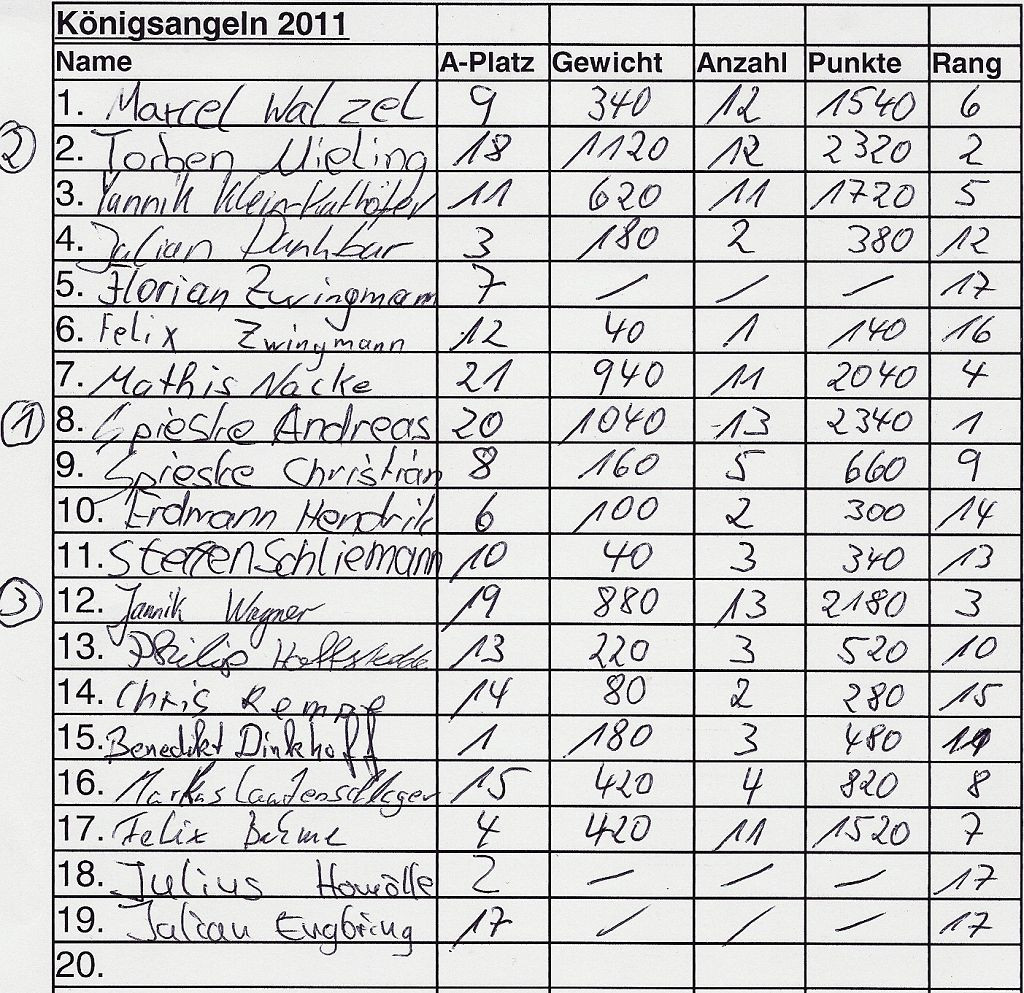 Königsangeln 2011
Name A-Platz Gewicht Anzahl Punkte Rang
1. Marcel Walzel 9 340 12 1540 6
② 2. Torben Nieling 18 1120 12 2320 2
3. Yannik Klein-Kathöfer 11 620 11 1720 5
4. Julian 3 180 2 380 12
5. Florian Zwingmann 7 / / / 17
6. Felix Zwingmann 12 40 1 140 16
7. Mathis Nacke 21 940 11 2040 4
① 8. Spieske Andreas 20 1040 13 2340 1
9. Spieske Christian 8 160 5 660 9
10. Erdmann Hendrik 6 100 2 300 14
11. Steffen Schliemann 10 40 3 340 13
③ 12. Jannik Wagner 19 880 13 2180 3
13. Philip 13 220 3 520 10
14. Chris Rempe 14 80 2 280 15
15. Benedikt Dinkhoff 1 180 3 480 11
16. Markus Lautenschlager 15 420 4 820 8
17. Felix 4 420 11 1520 7
18. Julius 2 / / / 17
19. Julian Engbring 17 / / / 17
20.